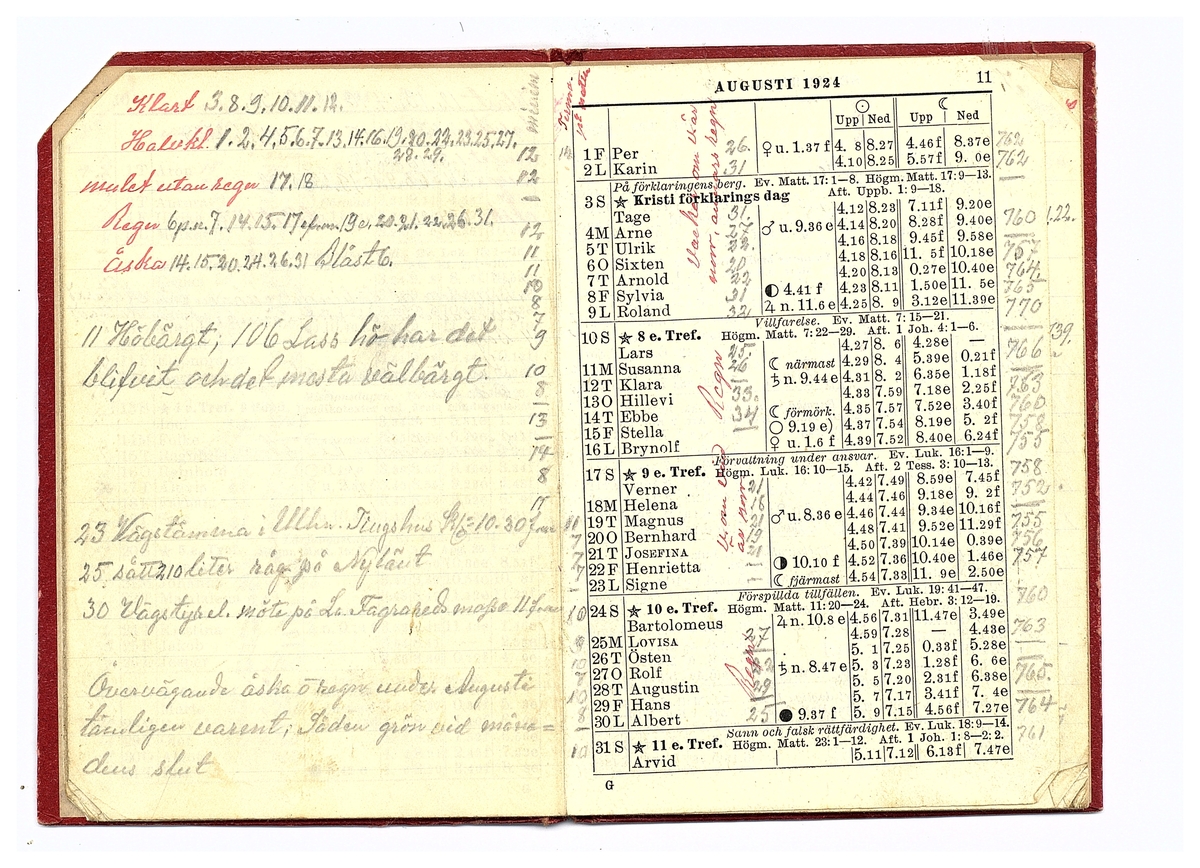 Klart 3.8.9.10.11.12.
Halvkl 1.2.4.5.6.7.13.14.16.19.20.22.23.25.27.
28.29.
mulet utan regn 17.18
Regn 6 p.e. 7.14.15.17 19 e. 20.21.22.26.31.
åska 14.15.20.24.26.31 blåst 6.
11 Höbärgt; 106 Lass hö har det
blifvit och det mesta välbärgt.
23 Vägstämma i Ullhn. Tingshus Kl. 10.30 f.m
25 sått 210 liter råg på Nylänt
30 Vägstyrel. möte på La. Fagrareds mosse 11 f.m
Övervägande åska o regn under Augusti
tämligen varmt; Säden grön vid måna=
dens slut
minim
12
12
—
12
11
11
10
8
7
9
10
8
—
13
—
14
8
—
17
AUGUSTI 1924
11
☉ ☾
Upp Ned Upp Ned
1 F Per 26. ♀ u. 1.37 f 4. 8 8.27 4.46f 8.37e 762
2 L Karin 31 4.10 8.25 5.57f 9. 0e 762
På förklaringens berg. Ev. Matt. 17: 1—8. Högm. Matt. 17: 9—13.
3 S ★ Kristi förklarings dag Aft. Uppb. 1: 9—18.
Tage 31. 4.12 8.23 7.11f 9.20e
4 M Arne 27. ♂ u. 9.36 e 4.14 8.20 8.28f 9.40e 760 1.22.
5 T Ulrik 4.16 8.18 9.45f 9.58e
6 O Sixten 20 4.18 8.16 11. 5f 10.18e 757
7 T Arnold 22 4.20 8.13 0.27e 10.40e 764.
8 F Sylvia 31 ◐ 4.41 f 4.23 8.11 1.50e 11. 5e 765
9 L Roland 32 ♃ n. 11.6 e 4.25 8. 9 3.12e 11.39e 770
Villfarelse. Ev. Matt. 7: 15—21.
10 S ★ 8 e. Tref. Högm. Matt. 7: 22—29. Aft. 1 Joh. 4: 1—6.
Lars 25. 4.27 8. 6 4.28e — 139.
11 M Susanna 26 ☾ närmast 4.29 8. 4 5.39e 0.21f 766
12 T Klara — ♄ n. 9.44 e 4.31 8. 2 6.35e 1.18f 763
13 O Hillevi 33. 4.33 7.59 7.18e 2.25f 760
14 T Ebbe 34 ☾ förmörk. 4.35 7.57 7.52e 3.40f 758
15 F Stella ○ 9.19 e) 4.37 7.54 8.19e 5. 2f 755
16 L Brynolf ♀ u. 1.6 f 4.39 7.52 8.40e 6.24f
Förvaltning under ansvar. Ev. Luk. 16: 1—9.
17 S ★ 9 e. Tref. Högm. Luk. 16: 10—15. Aft. 2 Tess. 3: 10—13. 758
Verner 21 4.42 7.49 8.59e 7.45f 752.
18 M Helena 16 4.44 7.46 9.18e 9. 2f
19 T Magnus 21 ♂ u. 8.36 e 4.46 7.44 9.34e 10.16f 755
20 O Bernhard 19 4.48 7.41 9.52e 11.29f 756
21 T Josefina 21 4.50 7.39 10.14e 0.39e 757
22 F Henrietta ◑ 10.10 f 4.52 7.36 10.40e 1.46e
23 L Signe ☾ fjärmast 4.54 7.33 11. 9e 2.50e
Förspillda tillfällen. Ev. Luk. 19: 41—47.
24 S ★ 10 e. Tref. Högm. Matt. 11: 20—24. Aft. Hebr. 3: 12—19. 760
Bartolomeus ♃ n. 10.8 e 4.56 7.31 11.47e 3.49e
25 M Lovisa 27 4.59 7.28 — 4.43e 763
26 T Östen 5. 1 7.25 0.33f 5.28e
27 O Rolf 22 ♄ n. 8.47 e 5. 3 7.23 1.28f 6. 6e 765.
28 T Augustin 29 5. 5 7.20 2.31f 6.38e
29 F Hans 5. 7 7.17 3.41f 7. 4e
30 L Albert 25 ● 9.37 f 5. 9 7.15 4.56f 7.27e 764
Sann och falsk rättfärdighet. Ev. Luk. 18: 9—14.
31 S ★ 11 e. Tref. Högm. Matt. 23: 1—12. Aft. 1 Joh. 1: 8—2: 2. 761
Arvid 5.11 7.12 6.13f 7.47e
G
Regn
Regn